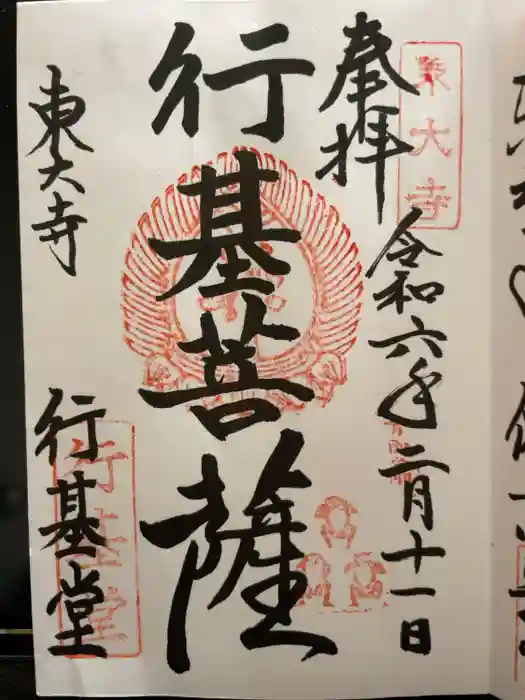 奉拝
東大寺
令和六年二月十一日
行基菩薩
東大寺
行基堂
行基堂